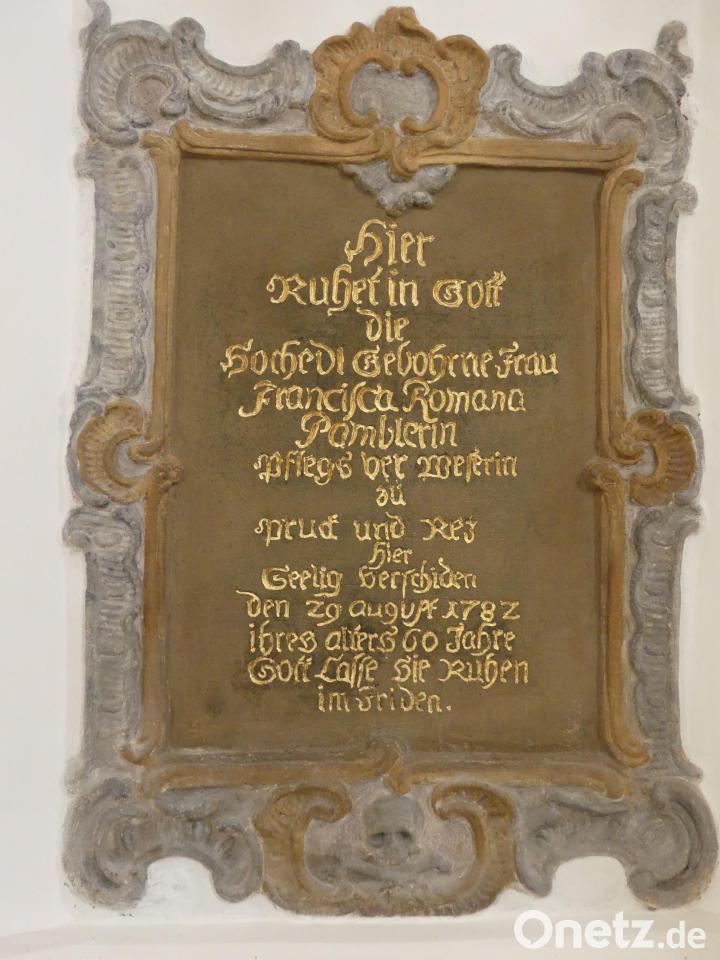 Hier
Ruhet in Gott
die
Hochedl Gebohrne Frau
Francisca Romana
Pamblerin
Pflegs ver weserin
zu
pruck und Rez
hier
Seelig verschiden
den 29 august 1782
ihres alters 60 Jahre
Gott Lasse sie Ruhen
im friden.
Onetz.de